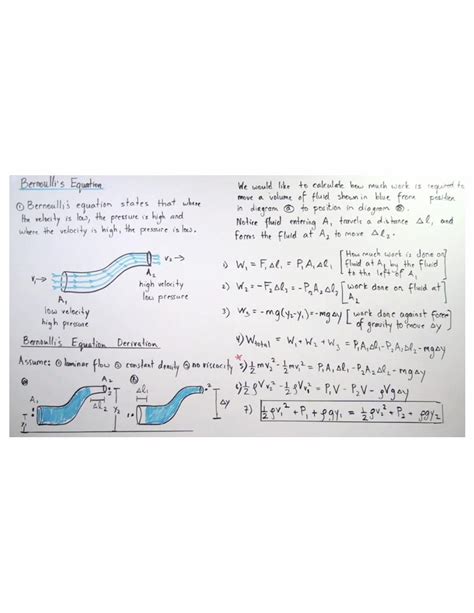 Bernoulli's Equation
① Bernoulli's equation states that where
the velocity is low, the pressure is high and
where the velocity is high, the pressure is low.
V₁ A₁ V₂ A₂
high velocity
low pressure
low velocity
high pressure
Bernoulli's Equation Derivation
Assume: ① laminar flow ② constant density ③ no viscosity
ⓐ A₁ A₂ Δl₂ y₂ y₁
ⓑ Δl₁ Δy
We would like to calculate how much work is required to
move a volume of fluid shown in blue from position
in diagram ⓐ to position in diagram ⓑ.
Notice fluid entering A₁ travels a distance Δl₁ and
forces the fluid at A₂ to move Δl₂.
1) W₁ = F₁Δl₁ = P₁A₁Δl₁ [How much work is done on
fluid at A₁ by the fluid
to the left of A₁]
2) W₂ = -F₂Δl₂ = -P₂A₂Δl₂ [work done on fluid at
A₂]
3) W₃ = -mg(y₂-y₁) = -mgΔy [work done against force
of gravity to move Δy]
4) W total = W₁ + W₂ + W₃ = P₁A₁Δl₁ - P₂A₂Δl₂ - mgΔy
* 5) ½mv₂² - ½mv₁² = P₁A₁Δl₁ - P₂A₂Δl₂ - mgΔy
6) ½ρVv₂² - ½ρVv₁² = P₁V - P₂V - ρVgΔy
7) ½ρv₁² + P₁ + ρgy₁ = ½ρv₂² + P₂ + ρgy₂